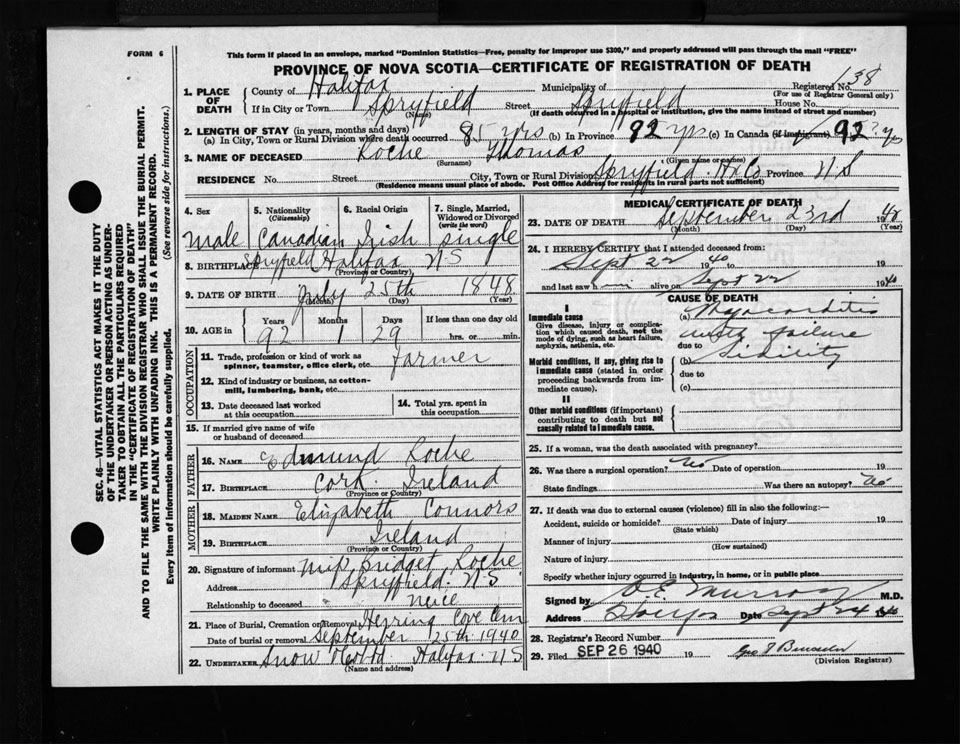 FORM 6
This form if placed in an envelope, marked "Dominion Statistics—Free, penalty for improper use $300," and properly addressed will pass through the mail "FREE"
PROVINCE OF NOVA SCOTIA—CERTIFICATE OF REGISTRATION OF DEATH
Registered No. 138
(For use of Registrar General only)
1. PLACE OF DEATH
County of Halifax Municipality of
If in City or Town Spryfield Street Spryfield House No.
(Name) (If death occurred in a hospital or institution, give the name instead of street and number)
2. LENGTH OF STAY (in years, months and days)
(a) In City, Town or Rural Division where death occurred 85 yrs (b) In Province 92 yrs (c) In Canada (if immigrant) 92 yrs
3. NAME OF DECEASED Roche Thomas
(Surname) (Given name or names)
RESIDENCE No. Street City, Town or Rural Division Spryfield Hx Co Province N.S
(Residence means usual place of abode. Post Office Address for residents in rural parts not sufficient)
4. Sex
male
5. Nationality
(Citizenship)
Canadian
6. Racial Origin
Irish
7. Single, Married, Widowed or Divorced
(write the word)
single
8. BIRTHPLACE Spryfield Halifax NS
(Province or Country)
9. DATE OF BIRTH July 25th 1848
(Month) (Day) (Year)
10. AGE in
Years Months Days If less than one day old
92 1 29 hrs. or min.
OCCUPATION
11. Trade, profession or kind of work as spinner, teamster, office clerk, etc. farmer
12. Kind of industry or business, as cotton-mill, lumbering, bank, etc.
13. Date deceased last worked at this occupation
14. Total yrs. spent in this occupation
15. If married give name of wife or husband of deceased
FATHER
16. NAME Edmund Roche
17. BIRTHPLACE Cork Ireland
(Province or Country)
MOTHER
18. MAIDEN NAME Elizabeth Connors
19. BIRTHPLACE Ireland
(Province or Country)
20. Signature of informant Miss Bridget Roche
Address Spryfield. NS
Relationship to deceased Neice
21. Place of Burial, Cremation or Removal Herring Cove Cem
Date of burial or removal September 25th 1940
22. UNDERTAKER Snow & Co Ltd. Halifax. NS
(Name and address)
MEDICAL CERTIFICATE OF DEATH
23. DATE OF DEATH September 23rd 1940
(Month) (Day) (Year)
24. I HEREBY CERTIFY that I attended deceased from:
Sept 22 1940 to 19
and last saw him alive on Sept 22 1940
CAUSE OF DEATH
I
Immediate cause
Give disease, injury or complication which caused death, not the mode of dying, such as heart failure, asphyxia, asthenia, etc.
(a) Myocarditis
with failure
due to
Morbid conditions, if any, giving rise to immediate cause (stated in order proceeding backwards from immediate cause).
(b)
due to
(c)
II
Other morbid conditions (if important) contributing to death but not causally related to immediate cause.
25. If a woman, was the death associated with pregnancy?
26. Was there a surgical operation? No Date of operation 19
State findings Was there an autopsy? no
27. If death was due to external causes (violence) fill in also the following:—
Accident, suicide or homicide? Date of injury 19
(State which)
Manner of injury
(How sustained)
Nature of injury
Specify whether injury occurred in industry, in home, or in public place
Signed by Murray M.D.
Address Date Sept 24 1940
28. Registrar's Record Number
29. Filed SEP 26 1940 19
(Division Registrar)
SEC. 46—VITAL STATISTICS ACT MAKES IT THE DUTY
OF THE UNDERTAKER OR PERSON ACTING AS UNDER-
TAKER TO OBTAIN ALL THE PARTICULARS REQUIRED
IN THE "CERTIFICATE OF REGISTRATION OF DEATH"
AND TO FILE THE SAME WITH THE DIVISION REGISTRAR WHO SHALL ISSUE THE BURIAL PERMIT.
WRITE PLAINLY WITH UNFADING INK. THIS IS A PERMANENT RECORD.
Every item of information should be carefully supplied. (See reverse side for instructions.)